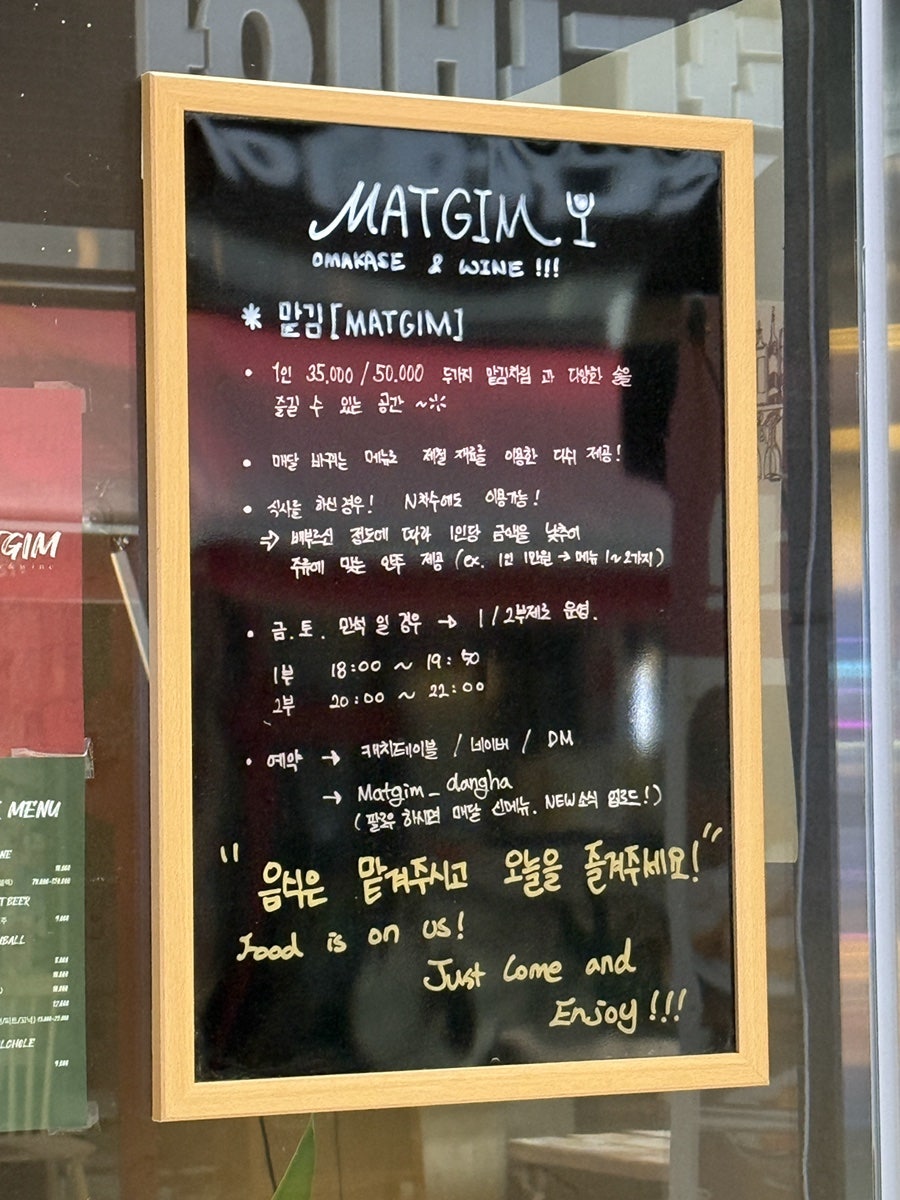 MATGIM
OMAKASE & WINE !!!
* 맡김 [MATGIM]
• 1인 35,000 / 50.000 두가지 맡김차림 과 다양한 술을
즐길 수 있는 공간 ~
• 매달 바뀌는 메뉴로 제철 재료를 이용한 디쉬 제공!
• 식사를 하신 경우! N차수에도 이용가능!
→ 배부르신 정도에 따라 1인당 금액을 낮추어
주류에 맞는 안주 제공 (ex. 1인 1만원 → 메뉴 1~2가지)
• 금.토. 만석 일 경우 → 1/2부제로 운영.
1부 18:00 ~ 19:50
2부 20:00 ~ 22:00
• 예약 → 캐치테이블 / 네이버 / DM
→ Matgim_dangha
(팔로우 하시면 매달 신메뉴. NEW소식 업로드!)
"음식은 맡겨주시고 오늘을 즐겨주세요!"
Food is on us!
Just Come and
Enjoy !!!
TGIM
MENU
NE
10.000
79.000-134.000
T BEER
주 9.000
HBALL
8.000
10.000
10.000
12.000
9.000